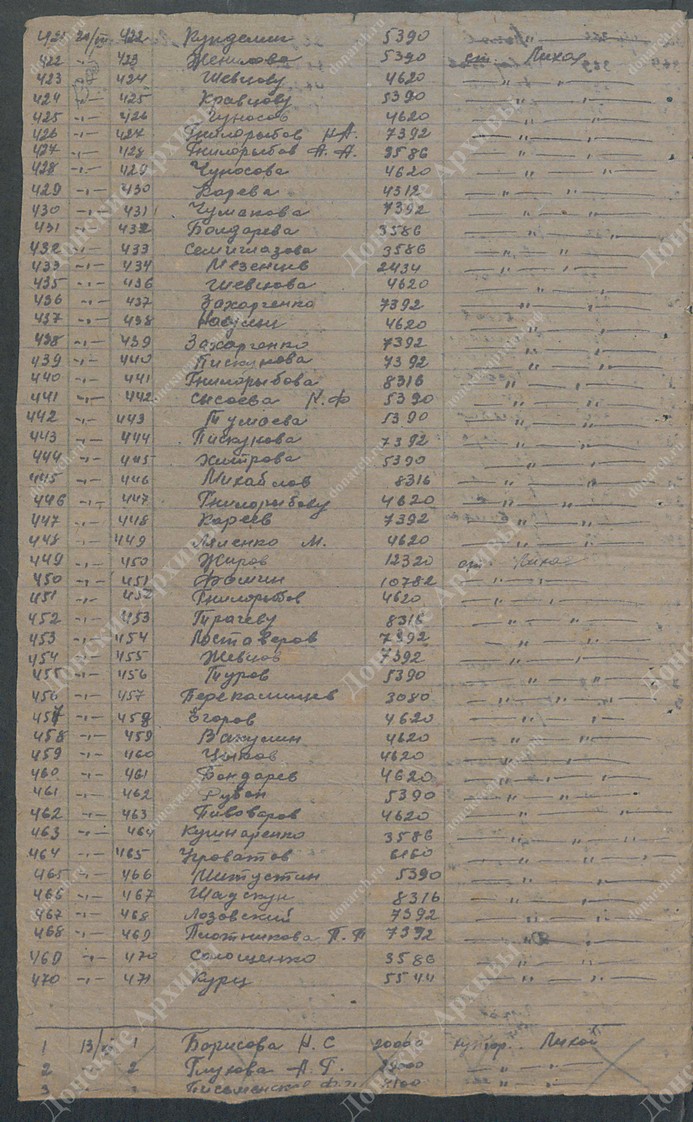 421 20/III 422 Кунделин 5390 — " —
422 -"- 423 Женилова 5390 ст. Лихая
423 424 Шевцову 4620 — " — " —
424 -"- 425 Кравцову 5390 — " — " —
425 -"- 426 Чуносов 4620 — " — " —
426 -"- 427 Гнилорыбов Н.А. 7392 — " — " —
427 -"- 428 Гнилорыбов А. А. 3586 — " — " —
428 -"- 429 Чуносова 4620 — " — " —
429 -"- 430 Карева 4312 — " — " —
430 -"- 431 Чумакова 7392 — " — " —
431 -"- 432 Бондарева 3586 — " — " —
432 -"- 433 Семиглазова 3586 — " — " —
433 -"- 434 Мезенцев 2434 — " — " —
435 -"- 436 Шевцова 4620 — " — " —
436 -"- 437 Захарченко 7392 — " — " —
437 -"- 438 4620 — " — " —
438 -"- 439 Захарченко 7392 — " — " —
439 -"- 440 Пискунова 7392 — " — " —
440 -"- 441 Гнилорыбова 8316 — " — " —
441 -"- 442 Сысоева Н.Ф 5390 — " — " —
442 443 Тумаева 5390 — " — " —
443 -"- 444 Пискунова 7392 — " — " —
444 -"- 445 Хитрова 5390 — " — " —
445 -"- 446 Михайлов 8316 — " — " —
446 -"- 447 Гнилорыбову 4620 — " — " —
447 -"- 448 Кареев 7392 — " — " —
448 -"- 449 Ляленко М. 4620 — " — " —
449 -"- 450 Жиров 12320 ст. Лихая
450 -"- 451 Фомин 10782 — " — " —
451 -"- 452 Гнилорыбов 4620 — " — " —
452 -"- 453 Трачеву 8316 — " — " —
453 -"- 454 Постоверов 7392 — " — " —
454 -"- 455 Жевлов 7392 — " — " —
455 -"- 456 Туров 5390 — " — " —
456 -"- 457 Перекальцев 3080 — " — " —
457 -"- 458 Егоров 4620 — " — " —
458 -"- 459 Вакулин 4620 — " — " —
459 -"- 460 4620 — " — " —
460 -"- 461 Бондарев 4620 — " — " —
461 -"- 462 Рубан 5390 — " — " —
462 -"- 463 Пивоваров 4620 — " — " —
463 -"- 464 Кушнаренко 3586 — " — " —
464 -"- 465 6160 — " — " —
465 -"- 466 Митустин 5390 — " — " —
466 -"- 467 Шадскун 8316 — " — " —
467 -"- 468 Лозовский 7392 — " — " —
468 -"- 469 Плотникова П.П 7392 — " — " —
469 -"- 470 Солошенко 3586 — " — " —
470 -"- 471 Курц 5544 — " — " —
1 13/ 1 Борисова Н. С 20000 хутор Лихой
2 2 Глухова А. Г. — " — " —
3 Письменская — " — " —
Донские Архивы
donarch.ru